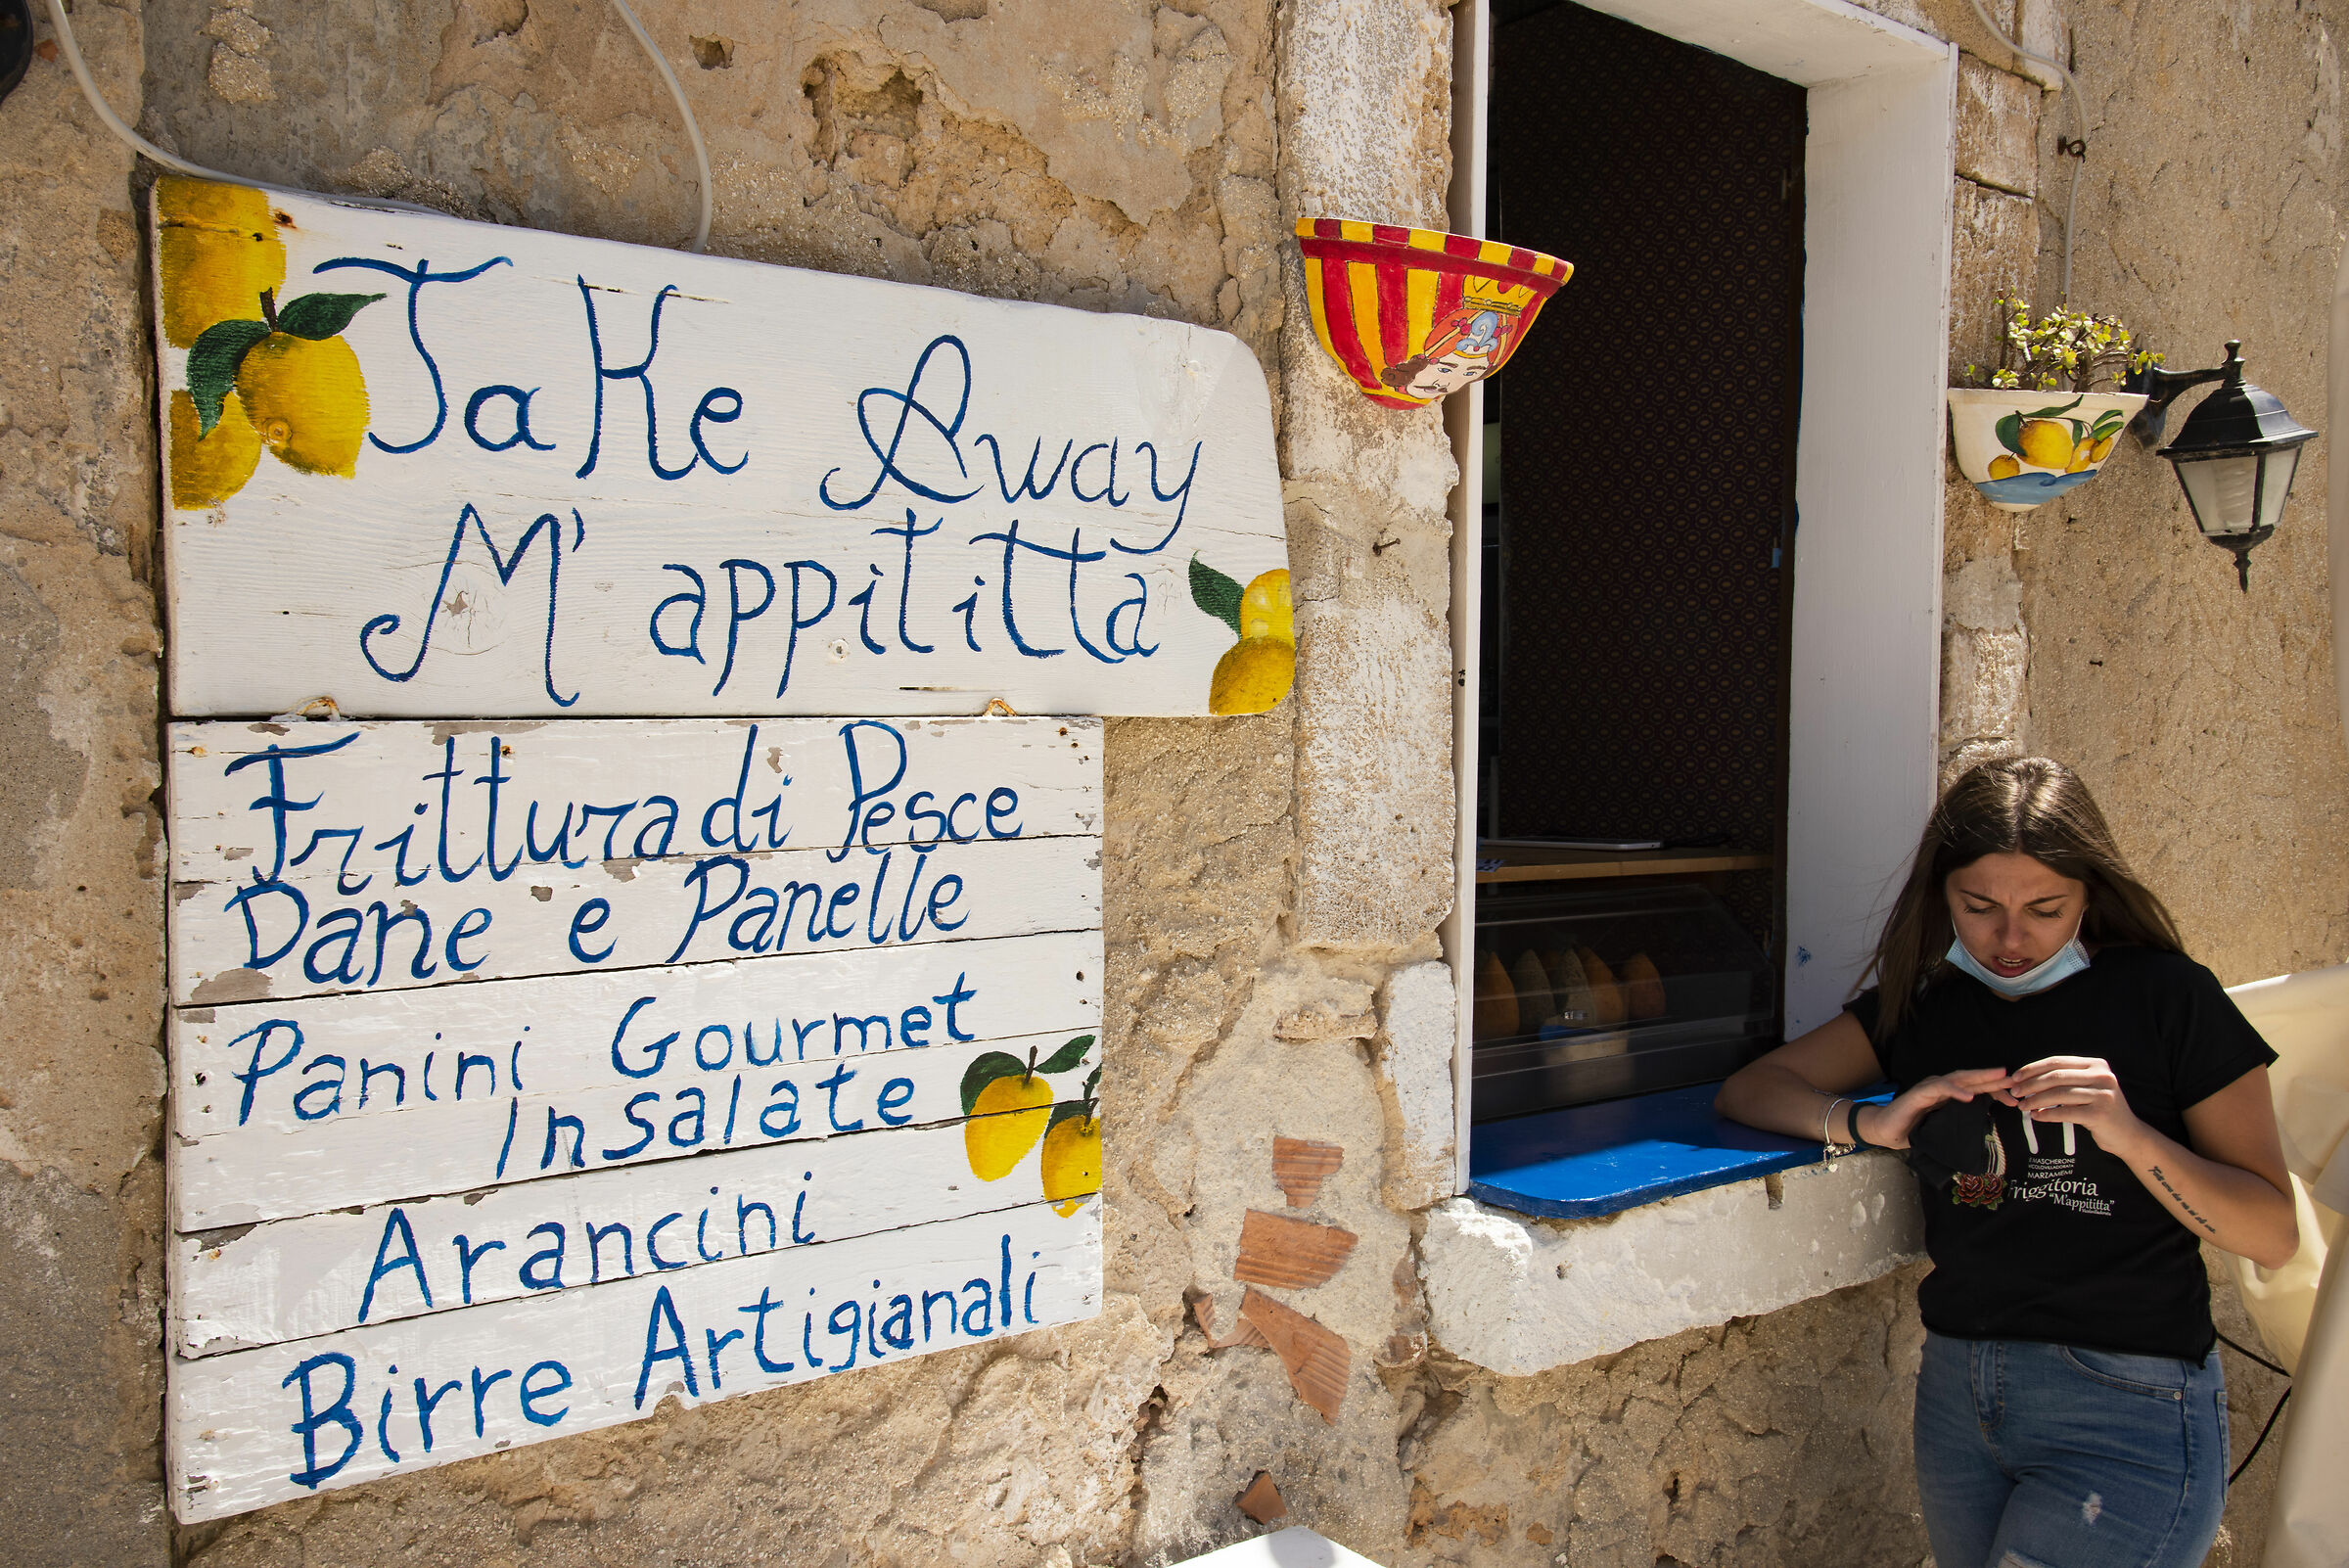 Take Away
M'appititta
Frittura di Pesce
Pane e Panelle
Panini Gourmet
Insalate
Arancini
Birre Artigianali
MASCHERONE
MARZAMEMI
Friggitoria
"M'appititta"